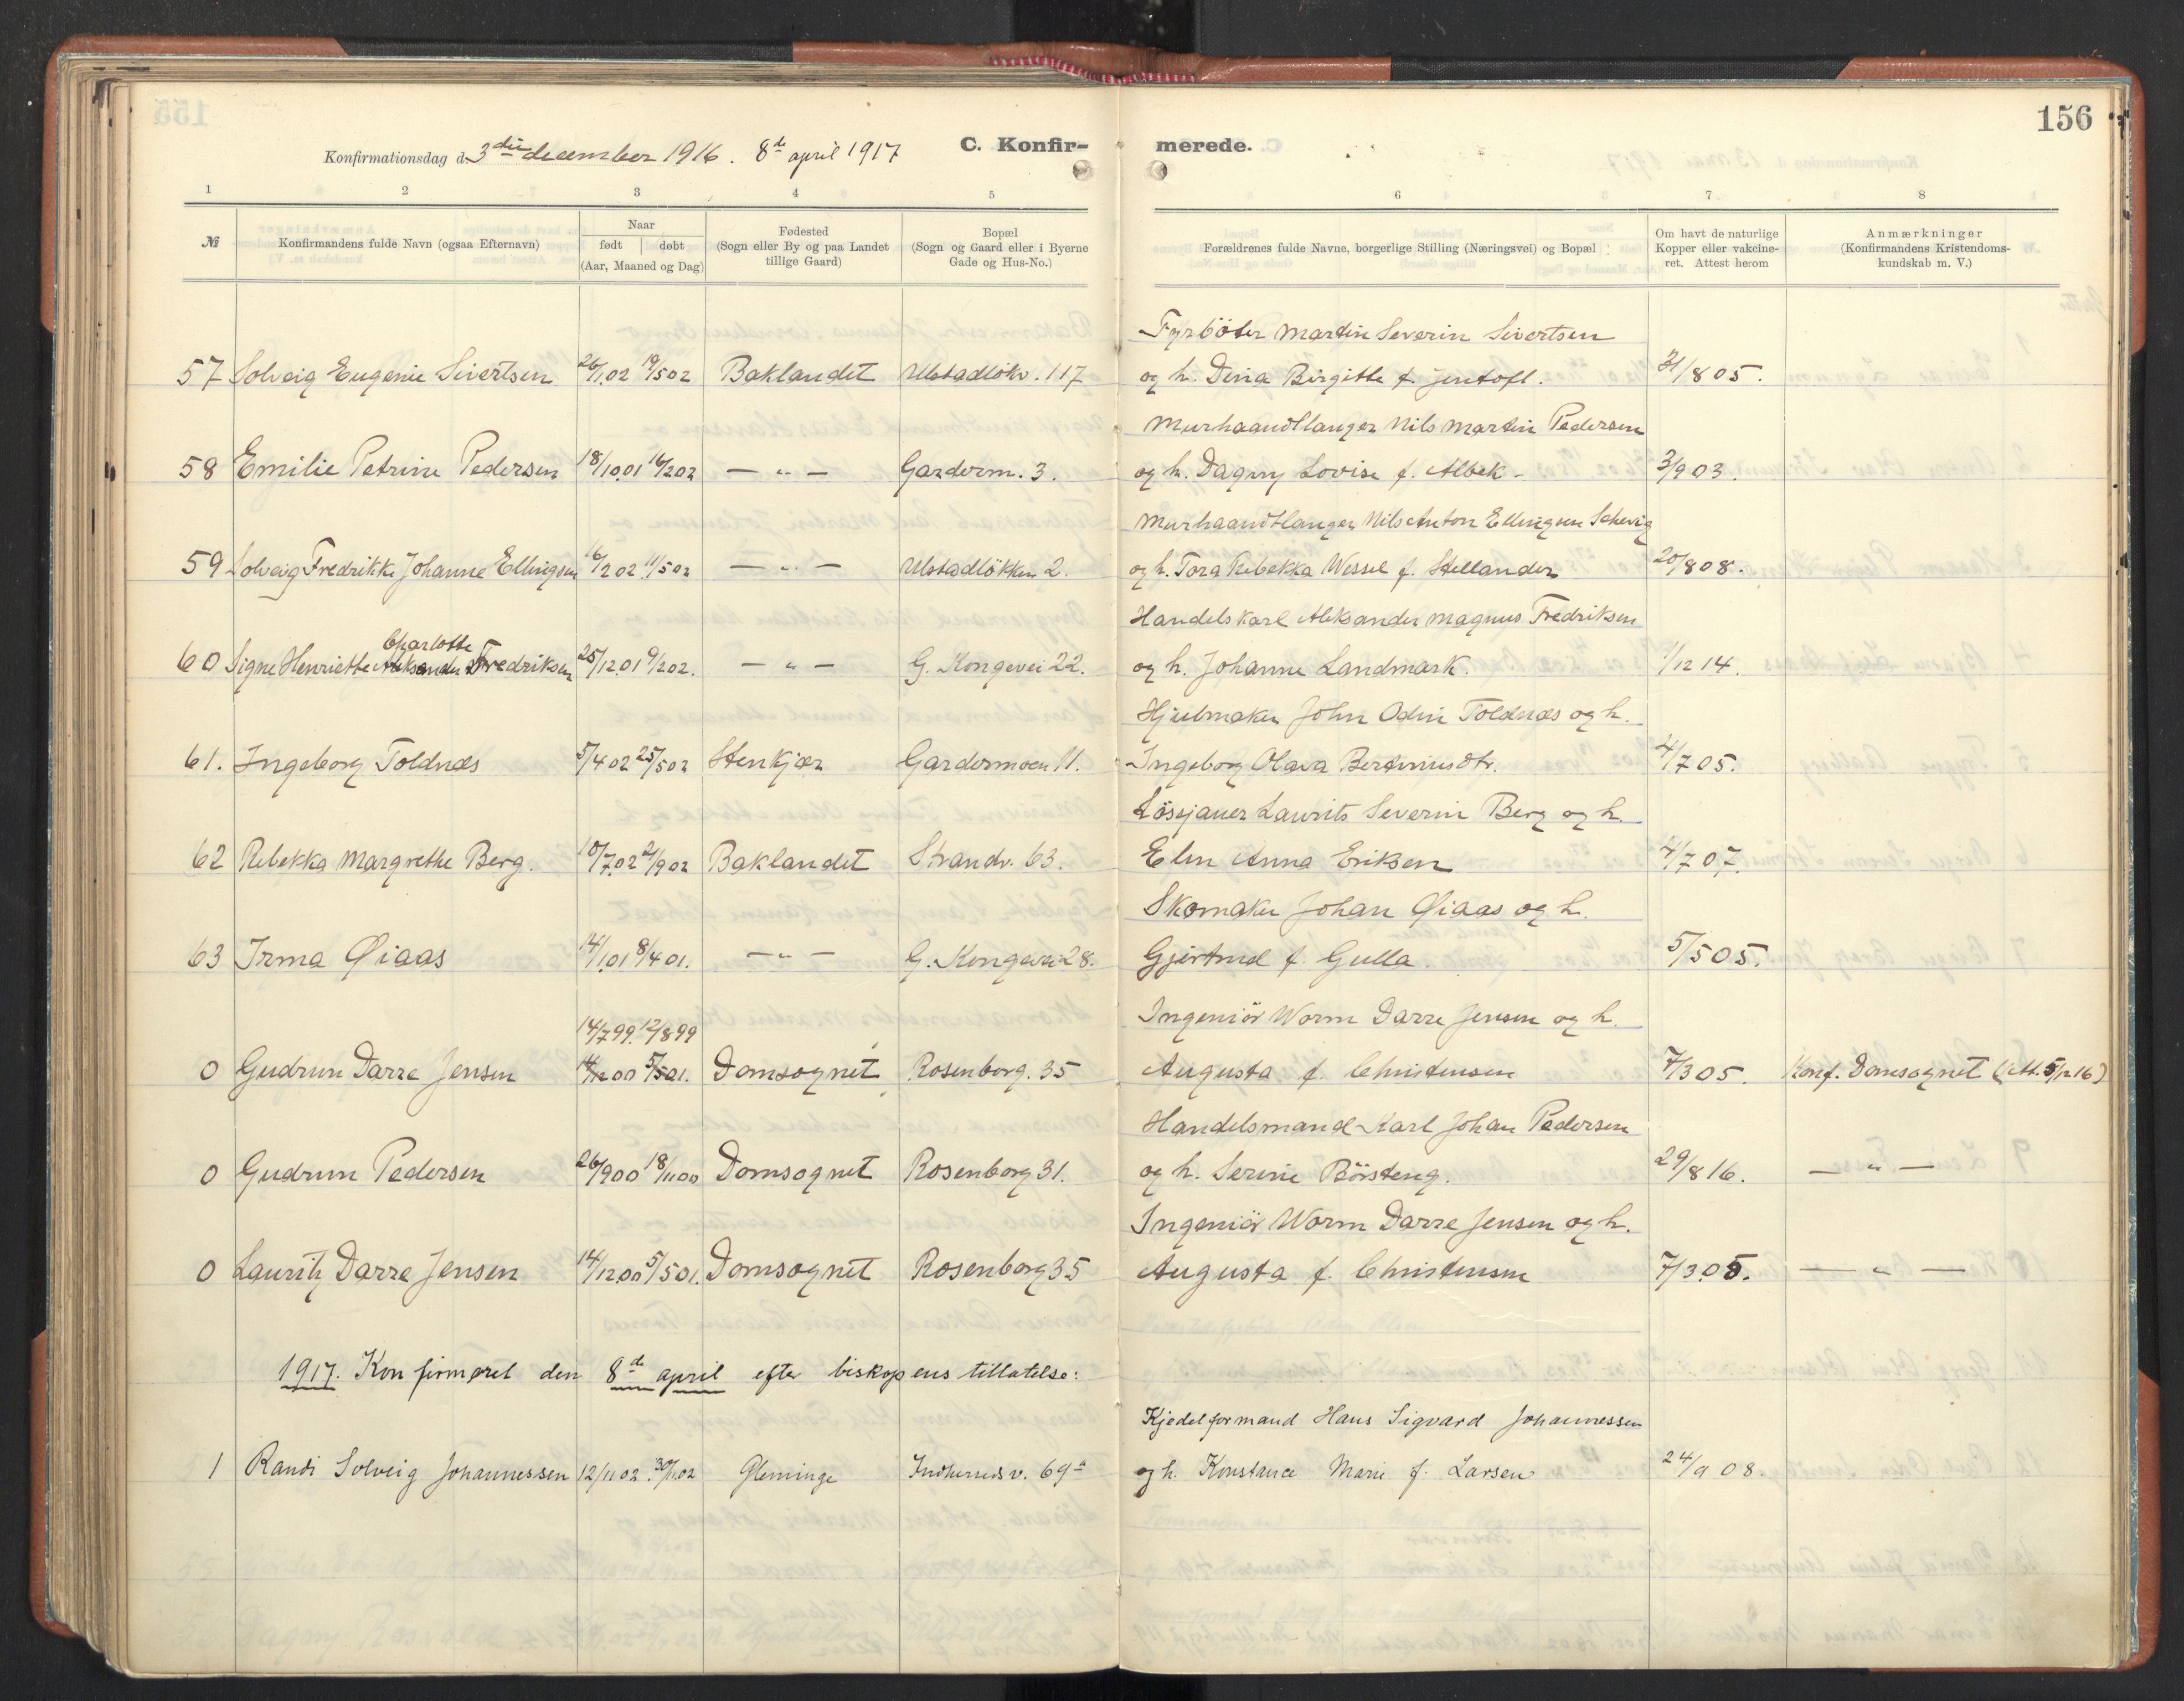 156
Konfirmationsdag d. 3die december 1916. 8de april 1917
C. Konfir- merede.
1 2 3 4 5 6 7 8
№ Konfirmandens fulde Navn (ogsaa Efternavn) Naar født døbt (Aar, Maaned og Dag) Fødested (Sogn eller By og paa Landet tillige Gaard) Bopæl (Sogn og Gaard eller i Byerne Gade og Hus-No.) Forældrenes fulde Navne, borgerlige Stilling (Næringsvei) og Bopæl Om havt de naturlige Kopper eller vakcineret. Attest herom Anmærkninger (Konfirmandens Kristendomskundskab m. V.)
Fyrböter Martin Severin Sivertsen
57 Solveig Eugenie Sivertsen 26/1 02 19/5 02 Baklandet Ulstadlökv. 117 og h. Dina Birgitte f. Jentoft. 31/8 05.
Murhaandtlanger Nils Martin Pedersen
58 Emilie Petrine Pedersen 18/10 01 16/2 02 — " — Garderm. 3. og h. Dagny Lovise f. Albek - 3/9 03.
Murhaandtlanger Nils Anton Ellingsen Schevig
59 Solveig Fredrikke Johanne Ellingsen 16/2 02 11/5 02 — " — Ulstadløkken 2. og h. Tora Rebekka Wessel f. Stellander 20/8 08.
Handelskarl Aleksander Magnus Fredriksen
Charlotte
60 Signe Henriette Fredriksen 25/12 01 9/2 02. — " — G. Kongevei 22. og h. Johanne Landmark. 1/12 14.
Hjulmaker John Odin Toldnæs og h.
61. Ingeborg Toldnæs 5/4 02 25/5 02 Stenkjær Gardermoen 11. Ingeborg Olava dtr. 4/7 05.
Løssjauer Laurits Severin Berg og h.
62 Rebekka Margrethe Berg. 10/7 02 21/9 02 Baklandet Strandv. 63. Elen Anna Eriksen 4/7 07.
Skomaker Johan Øiaas og h.
63 Irma Øiaas 14/1 01 8/4 01. — " — G. Kongevei 28. Gjertrud f. Gulla. 5/5 05.
14/7 99. 12/8 99 Ingeniör Worm Darre Jensen og h.
0 Gudrun Darre Jensen 14/12 00 5/5 01. Domsognet Rosenborg. 35 Augusta f. Christensen 7/3 05. Konf. Domsognet (att. 5/12 16)
Handelsmand Karl Johan Pedersen
0 Gudrun Pedersen 26/9 00 18/11 00 Domsognet Rosenborg 31. og h. Serine Börsteng. 29/8 16. — " —
Ingeniör Worm Darre Jensen og h.
0 Lauritz Darre Jensen 14/12 00 5/5 01. Domsognet Rosenborg 35 Augusta f. Christensen 7/3 05. — " —
1917. Konfirmeret den 8de april efter biskopens tillatelse:
Kjedelformand Hans Sigvard Johannessen
1 Randi Solveig Johannessen 12/11 02. 30/11 02 Gleminge Indherredsv. 69a og h. Konstance Marie f. Larsen 24/9 08.